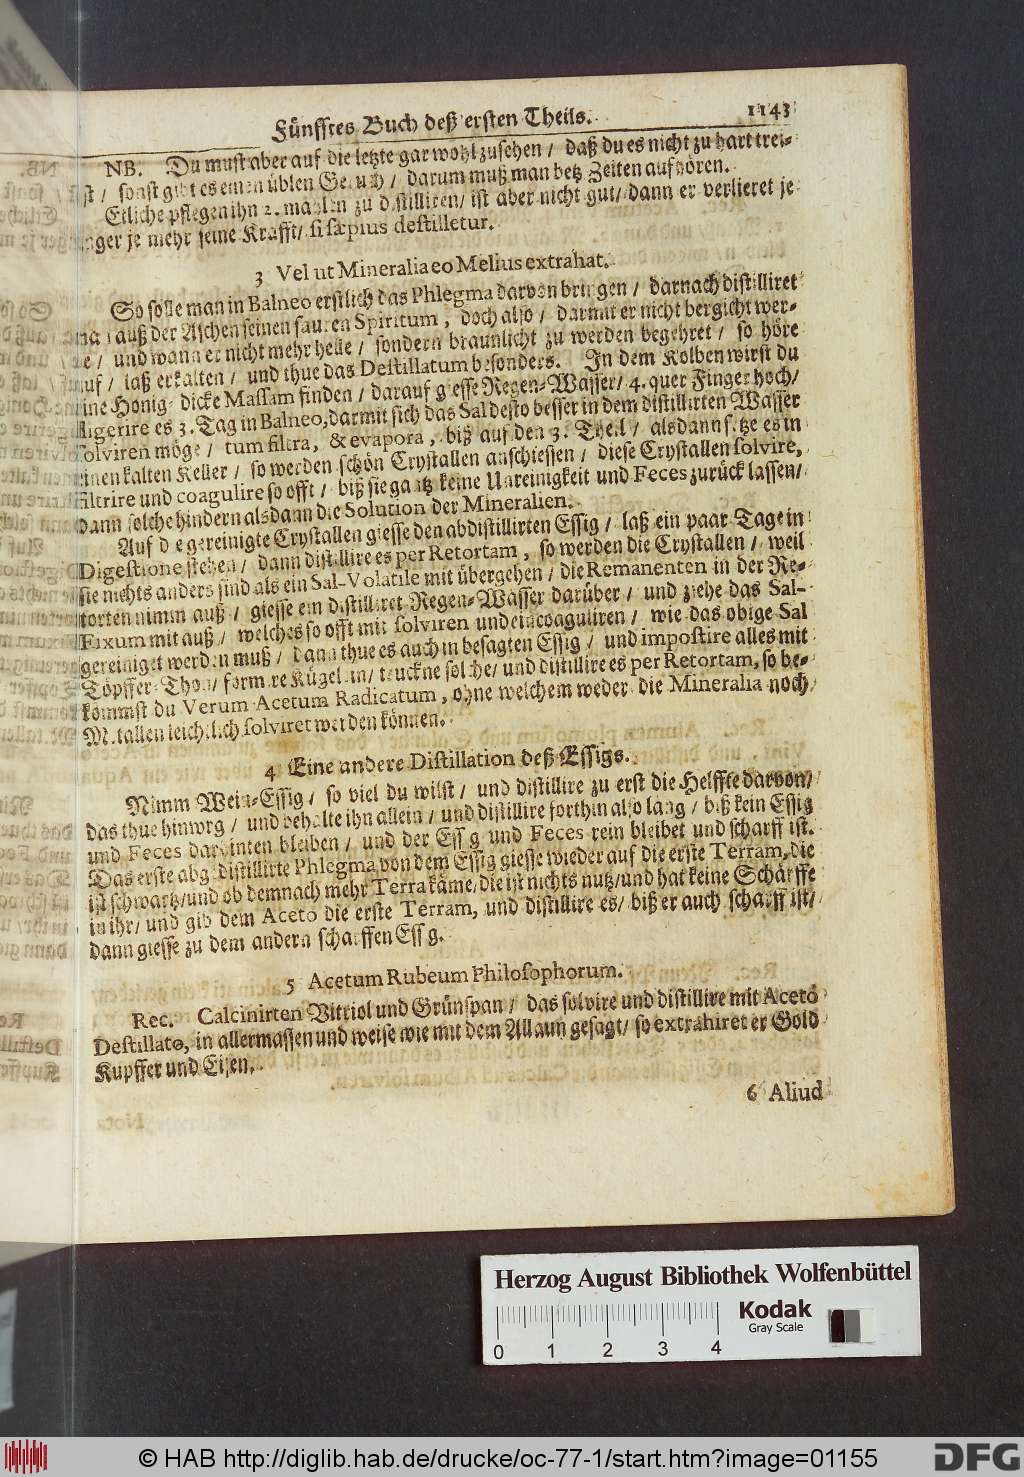 Fünfftes Buch deß ersten Theils. 1143
NB. Du must aber auf die letzte gar wohl zusehen / daß du es nicht zu hart trei-
st / sonst gibt es einen üblen Geruch / darum muß man betz Zeiten aufhören.
Etliche pflegen ihn 2. mahlen zu distilliren / ist aber nicht gut / dann er verlieret je
nger je mehr seine Krafft / si sæpius destilletur.
3 Vel ut Mineralia eo Melius extrahat.
So solle man in Balneo erstlich das Phlegma darvon bringen / darnach distilliret
man auß der Aschen seinen sauren Spiritum, doch also / darmit er nicht bergicht wer-
de / und wann er nicht mehr helle / sondern braunlicht zu werden begehret / so höre
auf / laß erkalten / und thue das Destillatum besonders. In dem Kolben wirst du
ine Honig-dicke Massam finden / darauf giesse Regen-Wasser / 4. quer Finger hoch /
digerire es 3. Tag in Balneo, darmit sich das Sal desto besser in dem distillirten Wasser
solviren möge / tum filtra, & evapora, biß auf den 3. Theil / alsdann setze es in
inen kalten Keller / so werden schön Crystallen anschiessen / diese Crystallen solvire,
filtrire und coagulire so offt / biß sie gantz keine Unreinigkeit und Feces zurück lassen /
dann solche hindern alsdann die Solution der Mineralien.
Auf die gereinigte Crystallen giesse den abdistillirten Essig / laß ein paar Tage in
Digestione stehen / dann distillire es per Retortam, so werden die Crystallen / weil
sie nichts anders sind als ein Sal-Volatile mit übergehen / die Remanenten in der Re-
torten nimm auß / giesse ein distilliret Regen-Wasser darüber / und ziehe das Sal-
Fixum mit auß / welches so offt mit solviren und eincoaguliren / wie das obige Sal
gereiniget werden muß / dann thue es auch in besagten Essig / und impostire alles mit
Töpffer-Thon / formire Kügelein / truckne solche / und distillire es per Retortam, so be-
kommst du Verum Acetum Radicatum, ohne welchem weder die Mineralia noch
Metallen leichtlich solviret werden können.
4 Eine andere Distillation deß Essigs.
Nimm Wein-Essig / so viel du wilst / und distillire zu erst die Helffte darvon /
das thue hinweg / und behalte ihn allein / und distillire forthin also lang / biß kein Essig
und Feces darhinten bleiben / und der Essig und Feces rein bleibet und scharff ist.
Das erste abgedistillirte Phlegma von dem Essig giesse wieder auf die erste Terram, die
ist schwartz / und ob demnach mehr Terra käme, die ist nichts nutz / und hat keine Schärffe
in ihr / und gib dem Aceto die erste Terram, und distillire es / biß er auch scharff ist /
dann giesse zu dem andern scharffen Essig.
5 Acetum Rubeum Philosophorum.
Rec. Calcinirten Vitriol und Grünspan / das solvire und distillire mit Aceto
Destillato, in allermassen und weise wie mit dem Allaun gesagt / so extrahiret er Gold
Kupffer und Eisen.
6 Aliud
Herzog August Bibliothek Wolfenbüttel
Kodak
Gray Scale
0 1 2 3 4
© HAB http://diglib.hab.de/drucke/oc-77-1/start.htm?image=01155
DFG